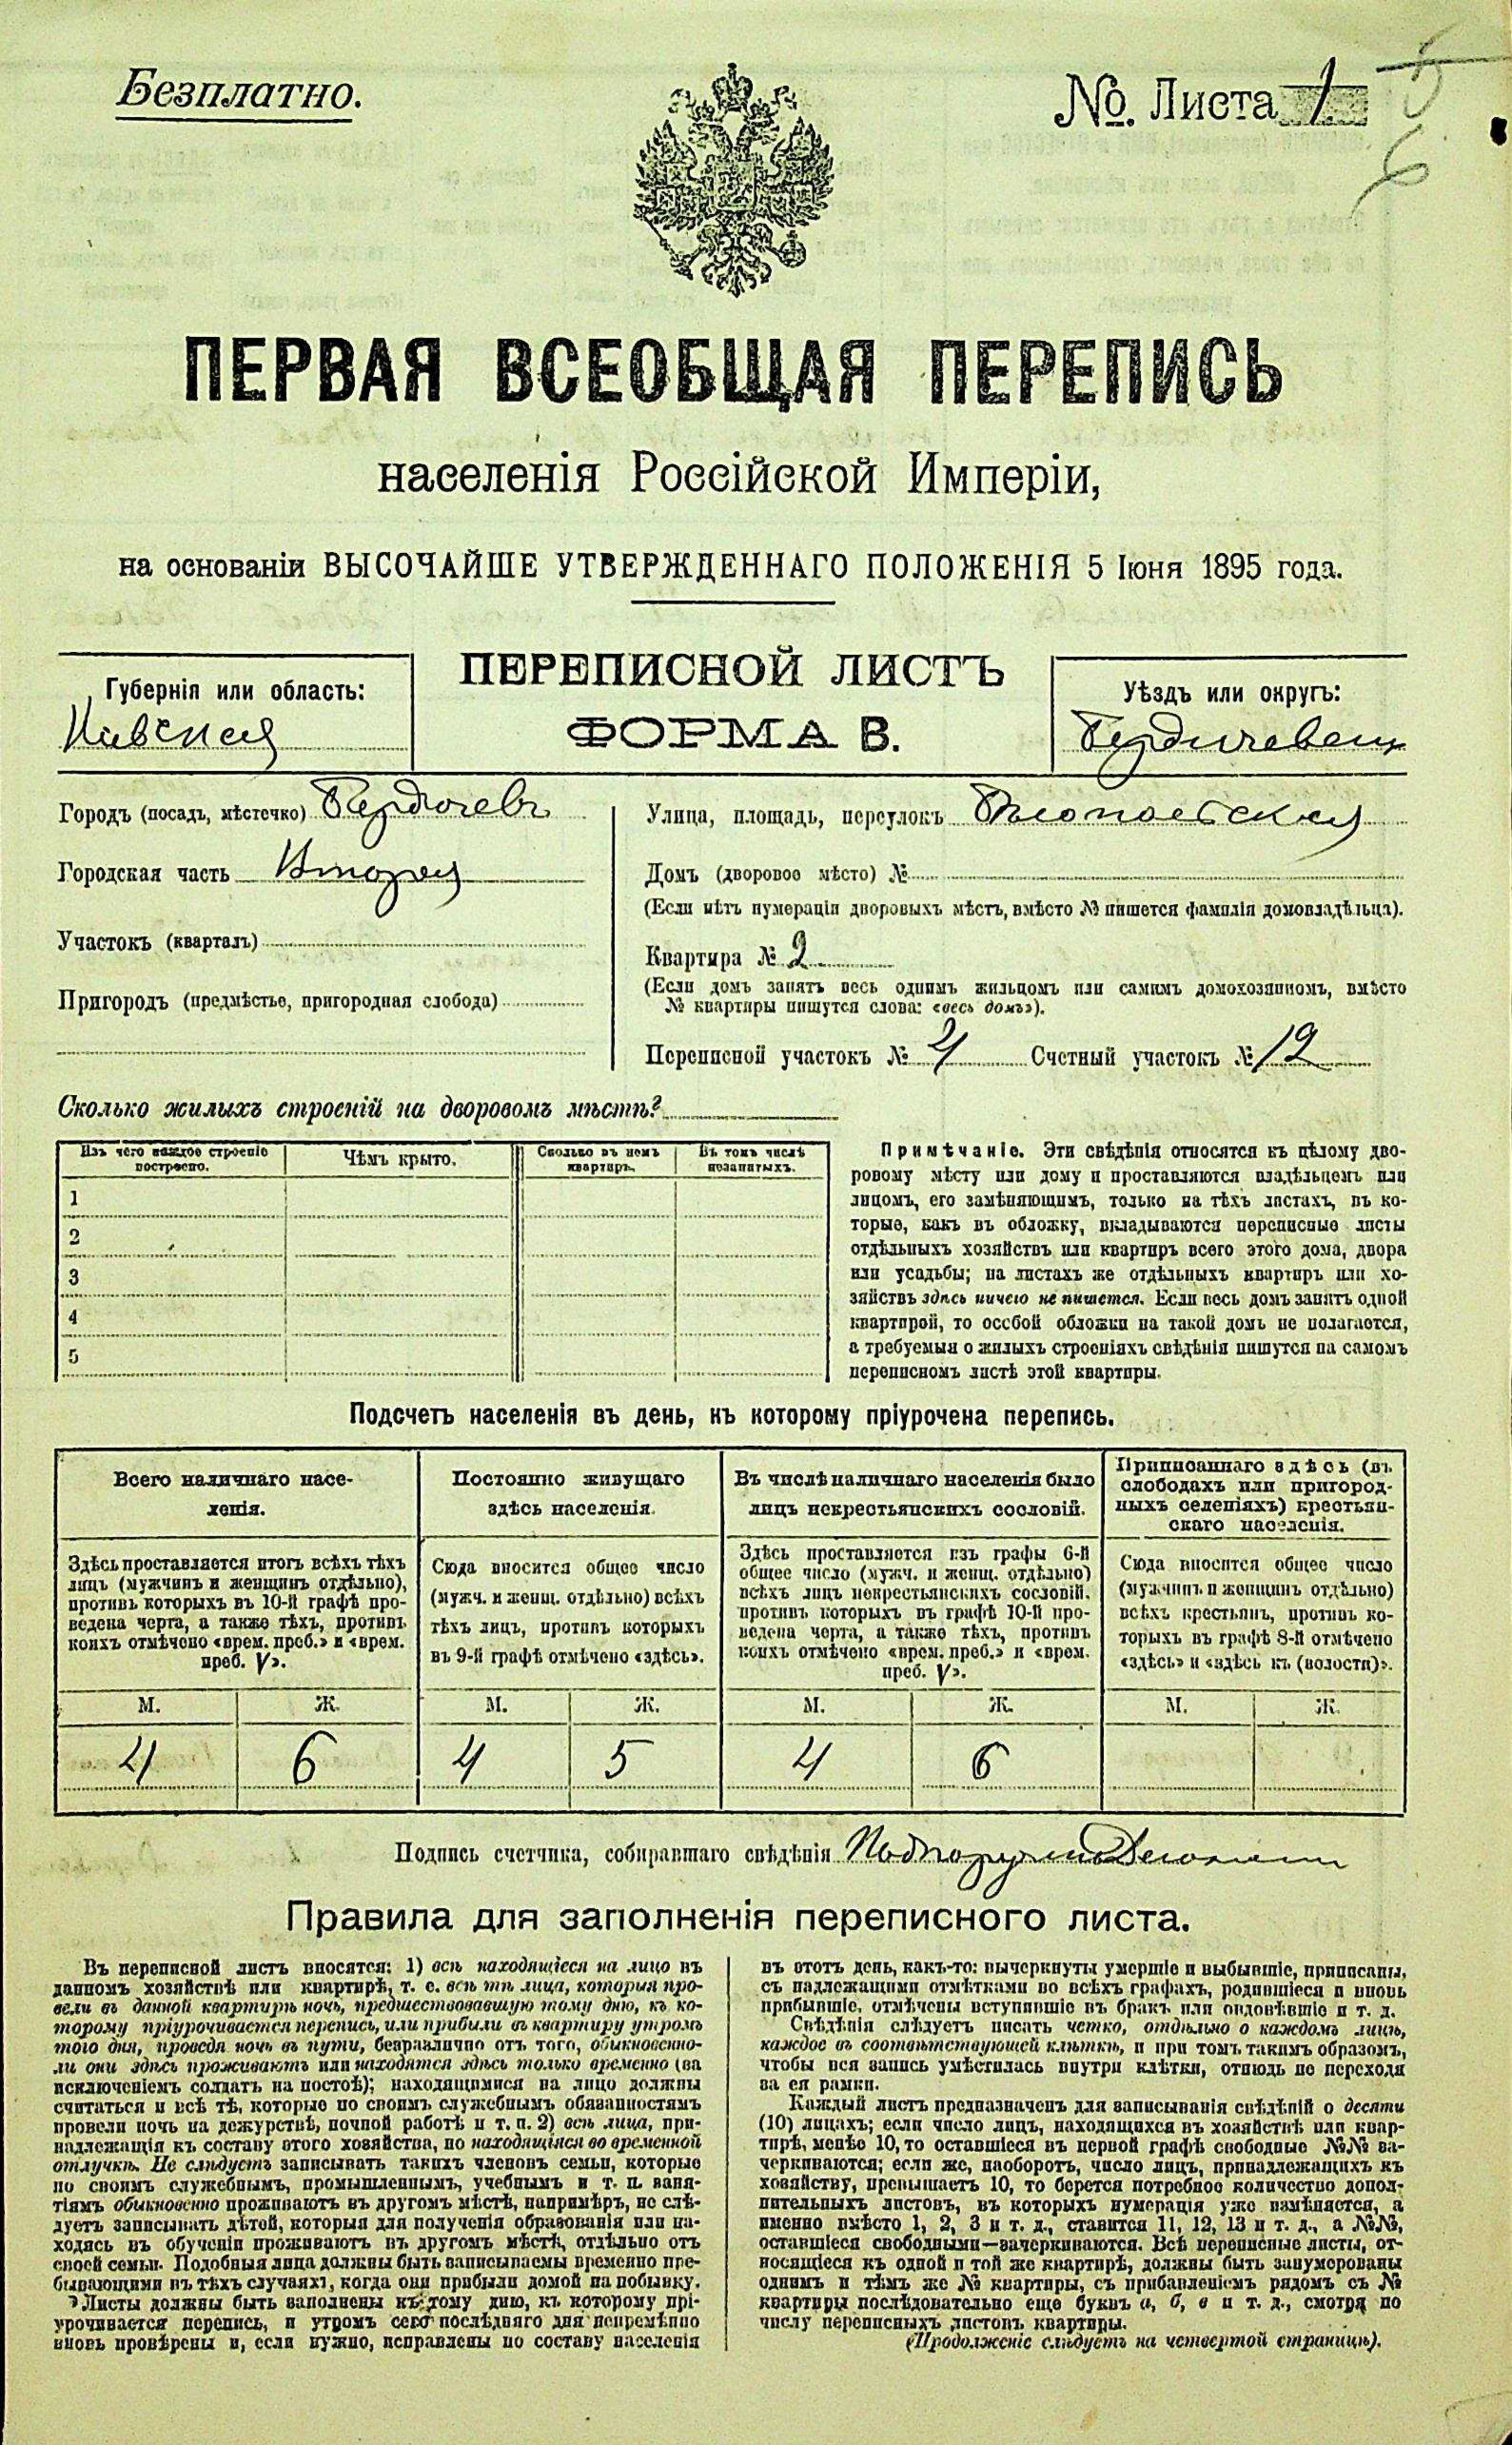 Безплатно.
№. Листа 1
6
ПЕРВАЯ ВСЕОБЩАЯ ПЕРЕПИСЬ
населенія Россійской Имперіи,
на основаніи ВЫСОЧАЙШЕ УТВЕРЖДЕННАГО ПОЛОЖЕНІЯ 5 Іюня 1895 года.
ПЕРЕПИСНОЙ ЛИСТЪ
ФОРМА В.
Губернія или область:
Кіевская
Уѣздъ или округъ:
Бердичевск
Городъ (посадъ, мѣстечко) Бердичевъ
Городская часть Вторая
Участокъ (кварталъ)
Пригородъ (предмѣстье, пригородная слобода)
Улица, площадь, переулокъ
Домъ (дворовое мѣсто) №
(Если нѣтъ нумераціи дворовыхъ мѣстъ, вмѣсто № пишется фамилія домовладѣльца).
Квартира № 2
(Если домъ занятъ весь однимъ жильцомъ или самимъ домохозяиномъ, вмѣсто
№ квартиры пишутся слова: «весь домъ»).
Переписной участокъ № 4 Счетный участокъ № 12
Сколько жилыхъ строеній на дворовомъ мѣстѣ?
Изъ чего каждое строеніе построено.
Чѣмъ крыто.
Сколько въ немъ квартиръ.
Въ томъ числѣ незанятыхъ.
1
2
3
4
5
Примѣчаніе. Эти свѣдѣнія относятся къ цѣлому дво-
ровому мѣсту или дому и проставляются владѣльцемъ или
лицомъ, его замѣняющимъ, только на тѣхъ листахъ, въ ко-
торые, какъ въ обложку, вкладываются переписные листы
отдѣльныхъ хозяйствъ или квартиръ всего этого дома, двора
или усадьбы; на листахъ же отдѣльныхъ квартиръ или хо-
зяйствъ здѣсь ничего не пишется. Если весь домъ занятъ одной
квартирой, то особой обложки на такой домъ не полагается,
а требуемыя о жилыхъ строеніяхъ свѣдѣнія пишутся на самомъ
переписномъ листѣ этой квартиры.
Подсчетъ населенія въ день, къ которому пріурочена перепись.
Всего наличнаго насе-
ленія.
Здѣсь проставляется итогъ всѣхъ тѣхъ
лицъ (мужчинъ и женщинъ отдѣльно),
противъ которыхъ въ 10-й графѣ про-
ведена черта, а также тѣхъ, противъ
коихъ отмѣчено «врем. преб.» и «врем.
преб. V».
Постоянно живущаго
здѣсь населенія.
Сюда вносится общее число
(мужч. и женщ. отдѣльно) всѣхъ
тѣхъ лицъ, противъ которыхъ
въ 9-й графѣ отмѣчено «здѣсь».
Въ числѣ наличнаго населенія было
лицъ некрестьянскихъ сословій.
Здѣсь проставляется изъ графы 6-й
общее число (мужч. и женщ. отдѣльно)
всѣхъ лицъ некрестьянскихъ сословій,
противъ которыхъ въ графѣ 10-й про-
ведена черта, а также тѣхъ, противъ
коихъ отмѣчено «врем. преб.» и «врем.
преб. V».
Приписаннаго здѣсь (въ
слободахъ или пригород-
ныхъ селеніяхъ) крестьян-
скаго населенія.
Сюда вносится общее число
(мужчинъ и женщинъ отдѣльно)
всѣхъ крестьянъ, противъ ко-
торыхъ въ графѣ 8-й отмѣчено
«здѣсь» и «здѣсь къ (волости)».
М. Ж. М. Ж. М. Ж. М. Ж.
4 6 4 5 4 6
Подпись счетчика, собиравшаго свѣдѣнія
Правила для заполненія переписного листа.
Въ переписной листъ вносятся: 1) всѣ находящіеся на лицо въ
данномъ хозяйствѣ или квартирѣ, т. е. всѣ тѣ лица, которыя про-
вели въ данной квартирѣ ночь, предшествовавшую тому дню, къ ко-
торому пріурочивается перепись, или прибыли въ квартиру утромъ
того дня, проведя ночь въ пути, безразлично отъ того, обыкновенно-
ли они здѣсь проживаютъ или находятся здѣсь только временно (за
исключеніемъ солдатъ на постоѣ); находящимися на лицо должны
считаться и всѣ тѣ, которые по своимъ служебнымъ обязанностямъ
провели ночь на дежурствѣ, ночной работѣ и т. п. 2) всѣ лица, при-
надлежащія къ составу этого хозяйства, но находящіяся во временной
отлучкѣ. Не слѣдуетъ записывать такихъ членовъ семьи, которые
по своимъ служебнымъ, промышленнымъ, учебнымъ и т. п. заня-
тіямъ обыкновенно проживаютъ въ другомъ мѣстѣ, напримѣръ, не слѣ-
дуетъ записывать дѣтей, которыя для полученія образованія или на-
ходясь въ обученіи проживаютъ въ другомъ мѣстѣ, отдѣльно отъ
своей семьи. Подобныя лица должны быть записываемы временно пре-
бывающими въ тѣхъ случаяхъ, когда они прибыли домой на побывку.
Листы должны быть заполнены къ тому дню, къ которому прі-
урочивается перепись, и утромъ сего послѣдняго дня непремѣнно
вновь провѣрены и, если нужно, исправлены по составу населенія
въ этотъ день, какъ-то: вычеркнуты умершіе и выбывшіе, приписаны,
съ надлежащими отмѣтками во всѣхъ графахъ, родившіеся и вновь
прибывшіе, отмѣчены вступившіе въ бракъ или овдовѣвшіе и т. д.
Свѣдѣнія слѣдуетъ писать четко, отдѣльно о каждомъ лицѣ,
каждое въ соотвѣтствующей клѣткѣ, и при томъ такимъ образомъ,
чтобы вся запись умѣстилась внутри клѣтки, отнюдь не переходя
за ея рамки.
Каждый листъ предназначенъ для записыванія свѣдѣній о десяти
(10) лицахъ; если число лицъ, находящихся въ хозяйствѣ или квар-
тирѣ, менѣе 10, то оставшіеся въ первой графѣ свободные №№ за-
черкиваются; если же, наоборотъ, число лицъ, принадлежащихъ къ
хозяйству, превышаетъ 10, то берется потребное количество допол-
нительныхъ листовъ, въ которыхъ нумерація уже измѣняется, а
именно вмѣсто 1, 2, 3 и т. д., ставится 11, 12, 13 и т. д., а №№,
оставшіеся свободными—зачеркиваются. Всѣ переписные листы, от-
носящіеся къ одной и той же квартирѣ, должны быть занумерованы
однимъ и тѣмъ же № квартиры, съ прибавленіемъ рядомъ съ №
квартиры послѣдовательно еще буквъ а, б, в и т. д., смотря по
числу переписныхъ листовъ квартиры.
(Продолженіе слѣдуетъ на четвертой страницѣ).